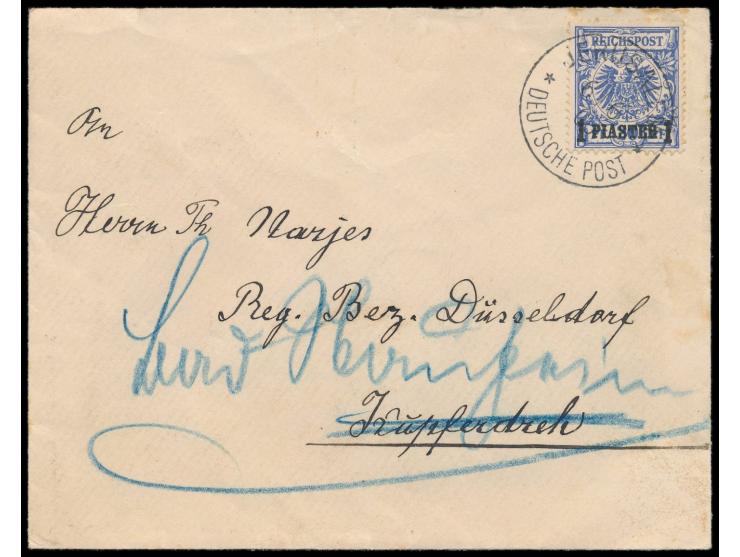 REICHSPOST
1 PIASTER 1
DEUTSCHE POST
An
Herrn Th Narjes
Reg. Bez. Düsseldorf
Kupferdreh